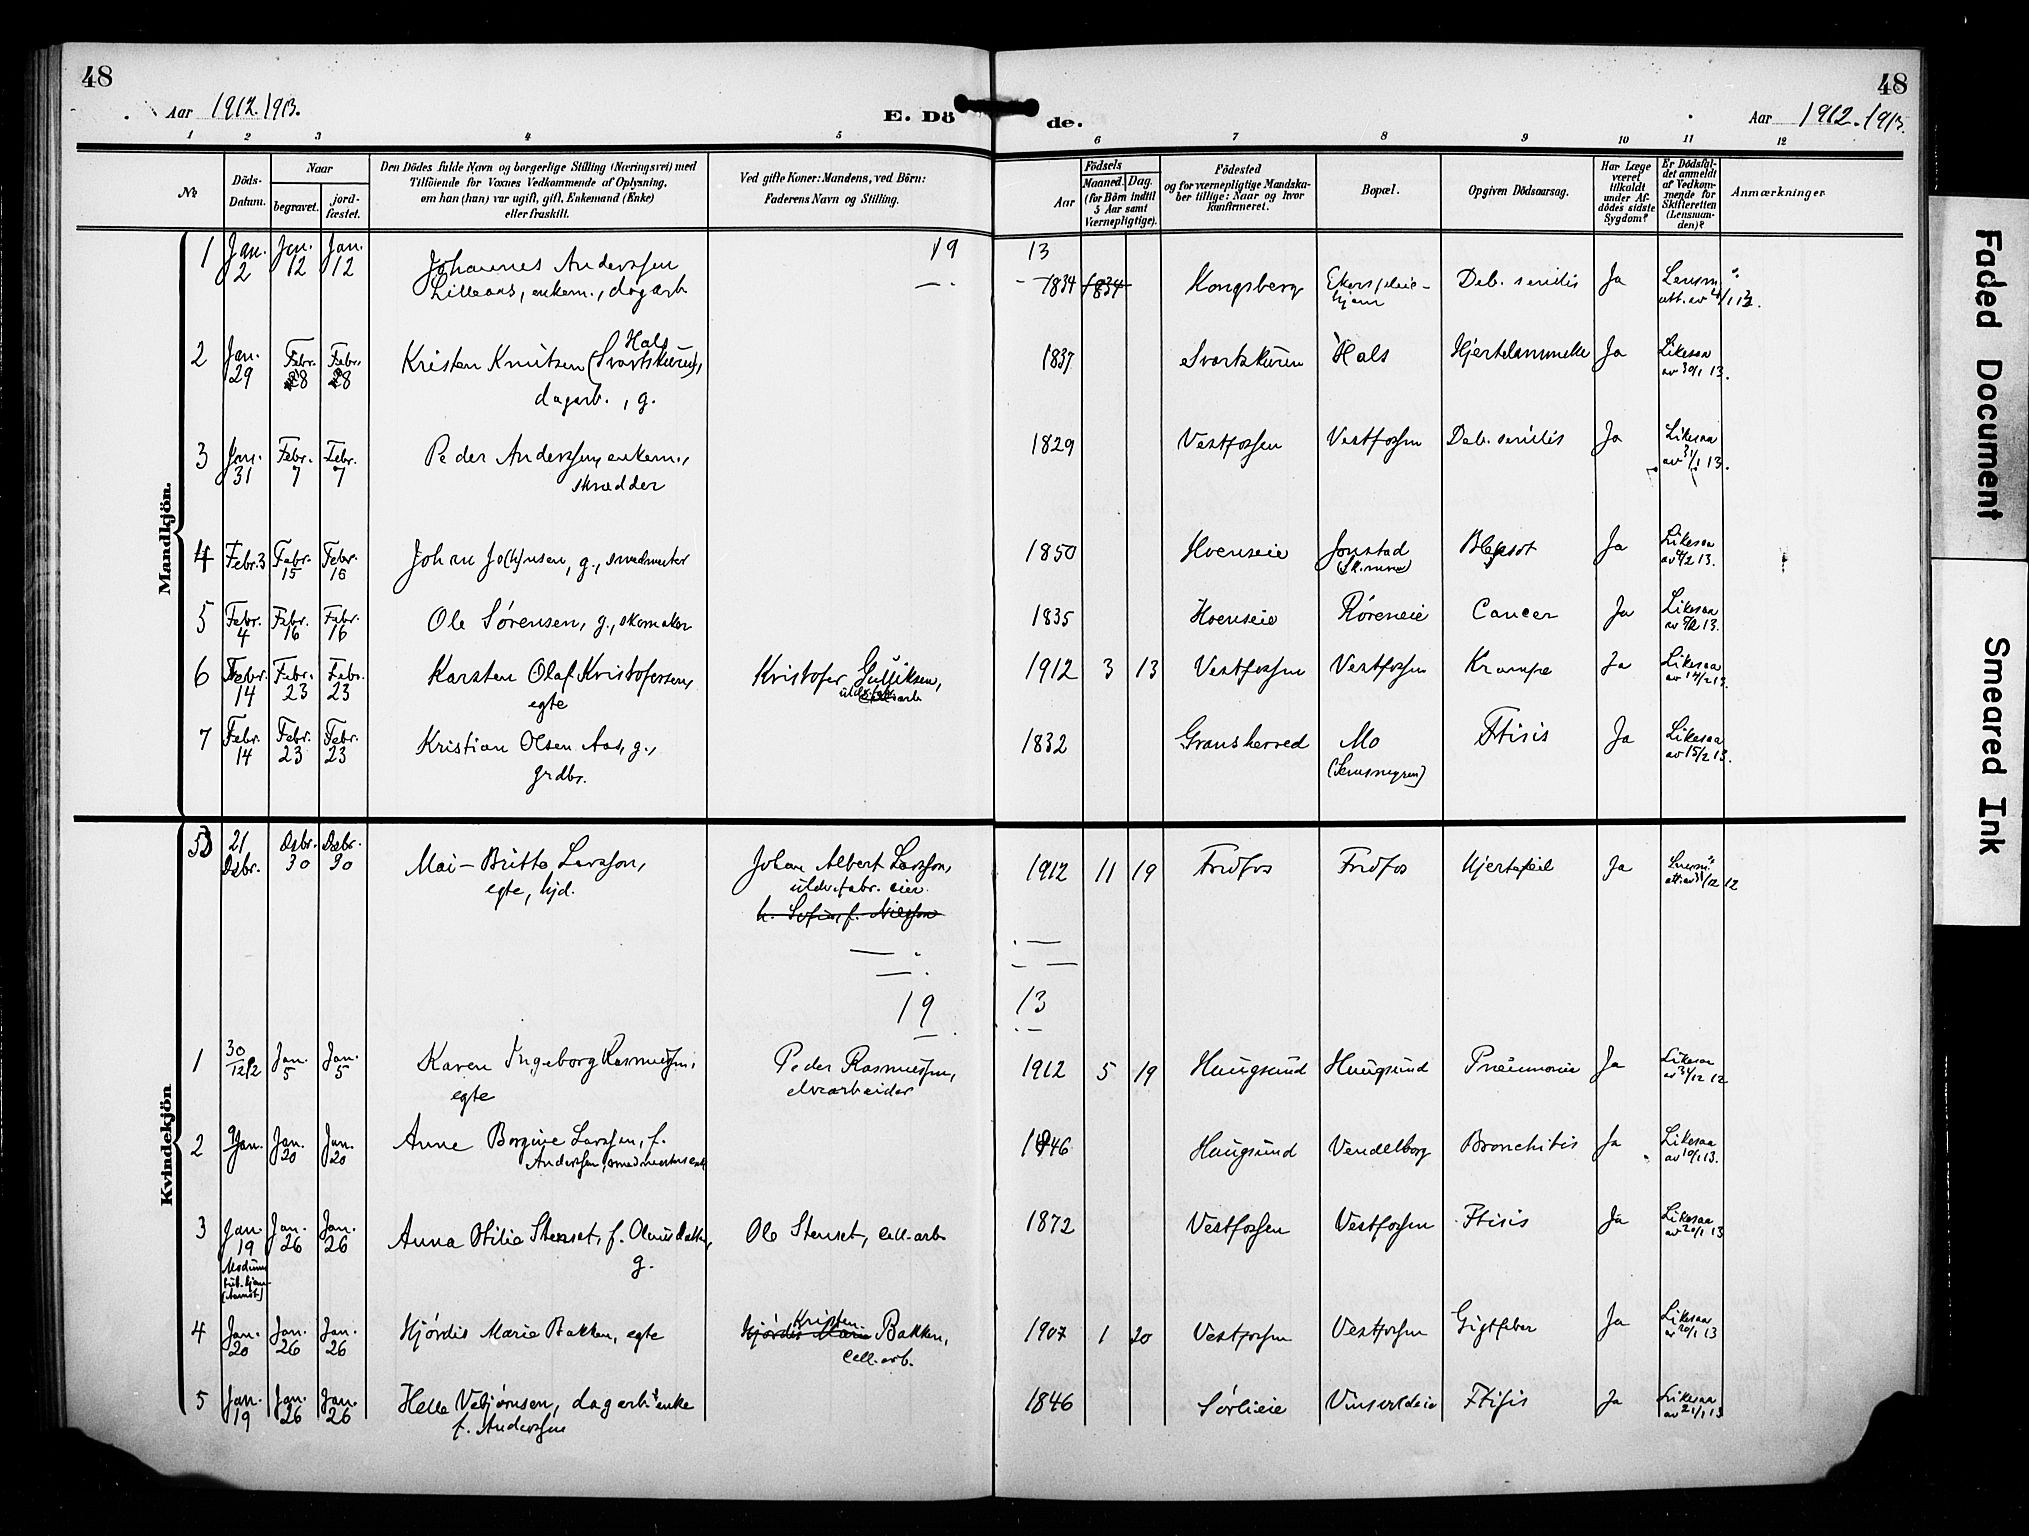 48
48
Aar 1912.1913.
E. Dö de.
Aar 1912.1913.
1 2 3 4 5 6 7 8 9 10 11 12
No
Döds-
Datum.
Naar
begravet.
jord-
fæstet.
Den Dödes fulde Navn og borgerlige Stilling (Næringsvei) med
Tilföiende for Voxnes Vedkommende af Oplysning,
om han (hun) var ugift, gift, Enkemand (Enke)
eller fraskilt.
Ved gifte Koner: Mandens, ved Börn:
Faderens Navn og Stilling.
Födsels
Aar
Maaned. Dag.
(for Börn indtil
5 Aar samt
Værnepligtige).
Födested
og for værnepligtige Mandska-
ber tillige: Naar og hvor
konfirmeret.
Bopæl.
Opgiven Dödsaarsag.
Har Læge
været
tilkaldt
under Af-
dödes sidste
Sygdom?
Er Dödsfal-
det anmeldt
af Vedkom-
mende for
Skifteretten
(Lensman-
den)?
Anmærkninger
Mandkjön.
19 13
1 Jan. 2 Jan. 12 Jan. 12 Johannes Anderssen
Lilleaas, enkem., dagarb. 1834 1834 Kongsberg Ekers pleie-
hjem Deb. senilis Ja Lensm.
att. av
2 Jan. 29 Febr. 8 Febr. 8 Kristen Knutsen (Svartskuren), Hals
dagarb., g. 1837 Svartskuren Hals Hjertelammelse Ja Likesaa
av 30/1 13.
3 Jan. 31 Febr. 7 Febr. 7 Peder Anderssen, enkem.,
skrædder 1829 Vestfossen Vestfossen Deb. senilis Ja Likesaa
av 31/1 13.
4 Febr. 3 Febr. 15 Febr. 15 Johan Jo(h)nsen, g., smedmester 1850 Hoenseie Jonstad Ja Likesaa
5 Febr. 4 Febr. 16 Febr. 16 Ole Sørensen, g., skomaker 1835 Hoenseie Røreneie Cancer Ja Likesaa
6 Febr. 14 Febr. 23 Febr. 23 Karsten Olaf Kristofersen,
egte Kristofer Gulliksen, 1912 3 13 Vestfossen Vestfossen Krampe Ja Likesaa
av 14/2 13.
7 Febr. 14 Febr. 23 Febr. 23 Kristian Olsen Aas, g.,
grdbr. 1832 Gransherred Mo Ftisis Ja Likesaa
av 15/2 13.
Kvindekjön
21 Dsbr. Dsbr. 30 Dsbr. 30 Mai-Britta Larsson,
egte, hjd. Johan Albert Larsson,
uldv.fabr. eier.
h. Sofia, f. Nilsson 1912 11 19 Fridfos Fridfos Hjertefeil Ja Lensm.
19 13
1 30/12 12 Jan. 5 Jan. 5 Karen Ingeborg Rasmussen,
egte Peder Rasmussen,
elvearbeider 1912 5 19 Haugsund Haugsund Pneumonie Ja Likesaa
av 31/12 12
2 9 Jan. Jan. 20 Jan. 20 Anne Borgine Larssen, f.
Anderssen, smedmesters enke 1846 Haugsund Vendelborg Bronchitis Ja Likesaa
av 10/1 13.
3 Jan. 19 Jan. 26 Jan. 26 Anna Otilie Stenset, f.
g. Ole Stenset, cell.arb. 1872 Vestfossen Vestfossen Ftisis Ja Likesaa
av 20/1 13
Modum
tub.hjem
4 Jan. 20 Jan. 26 Jan. 26 Hjørdis Marie Bakken, egte Hjørdis Marie Kristen Bakken,
Cell.arb. 1907 1 20 Vestfossen Vestfossen Gigtfeber Ja Likesaa
av 20/1 13
5 Jan. 19 Jan. 26 Jan. 26 Helle Vebjørnsen, dagarb.s enke
f. Anderssen 1846 Sørlieie Ftisis Ja Likesaa
av 21/1 13
Faded Document
Smeared Ink